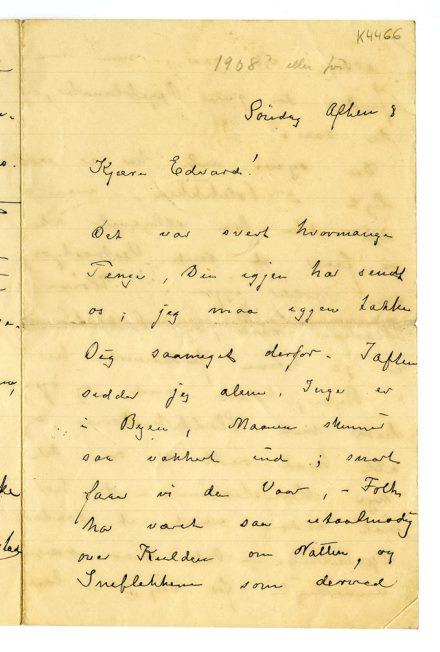 K4466
1908? eller før
Søndag Aften
Kjære Edvard!
Det var svert hvormange
Penge, Du igjen har sendt
os; jeg maa iggen takke
Dig saameget derfor. Iaften
sidder jeg alene, Inger er
i Byen, Maanen skinner
saa vakkert ind; snart
faar vi da Vaar, – Folk
har været saa utaalmodig
over Kulden om Natten, og
Sneflekkene som derved